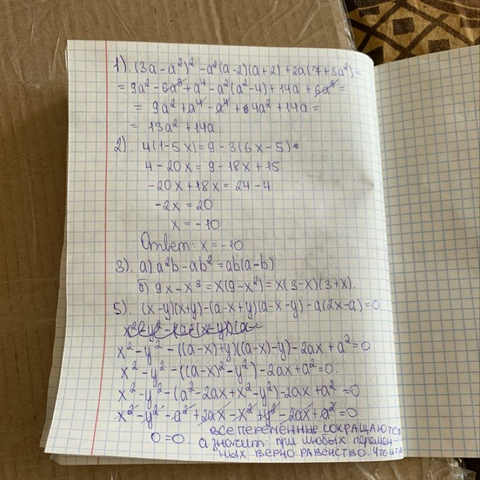 1) (3a - a²)² - a²(a-2)(a+2) + 2a(7+3a²) =
= 9a² - 6a³ + a⁴ - a²(a²-4) + 14a + 6a³ =
= 9a² + a⁴ - a⁴ + 4a² + 14a =
= 13a² + 14a
2) 4(1-5x) = 9 - 3(6x-5).
4 - 20x = 9 - 18x + 15
-20x + 18x = 24 - 4
-2x = 20
x = -10
Ответ: x = -10
3) а) a²b - ab² = ab(a-b)
б) 9x - x³ = x(9-x²) = x(3-x)(3+x).
5) (x-y)(x+y) - (a-x+y)(a-x-y) - a(2x-a) = 0
x² - y² - ((a-x)+y)((a-x)-y) - 2ax + a² = 0
x² - y² - ((a-x)² - y²) - 2ax + a² = 0.
x² - y² - (a² - 2ax + x² - y²) - 2ax + a² = 0
x² - y² - a² + 2ax - x² + y² - 2ax + a² = 0
0 = 0. все переменные сокращаются
а значит при любых перемен-
ных верно равенство. что и